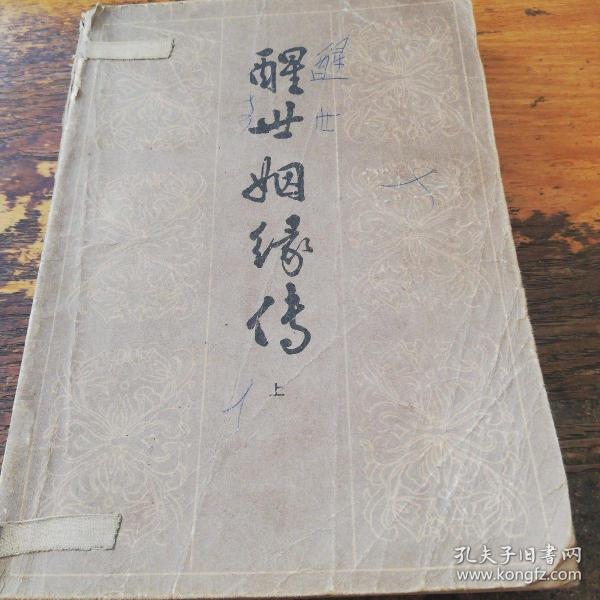 醒世姻缘传
上
醒世
孔夫子旧书网
www.kongfz.com